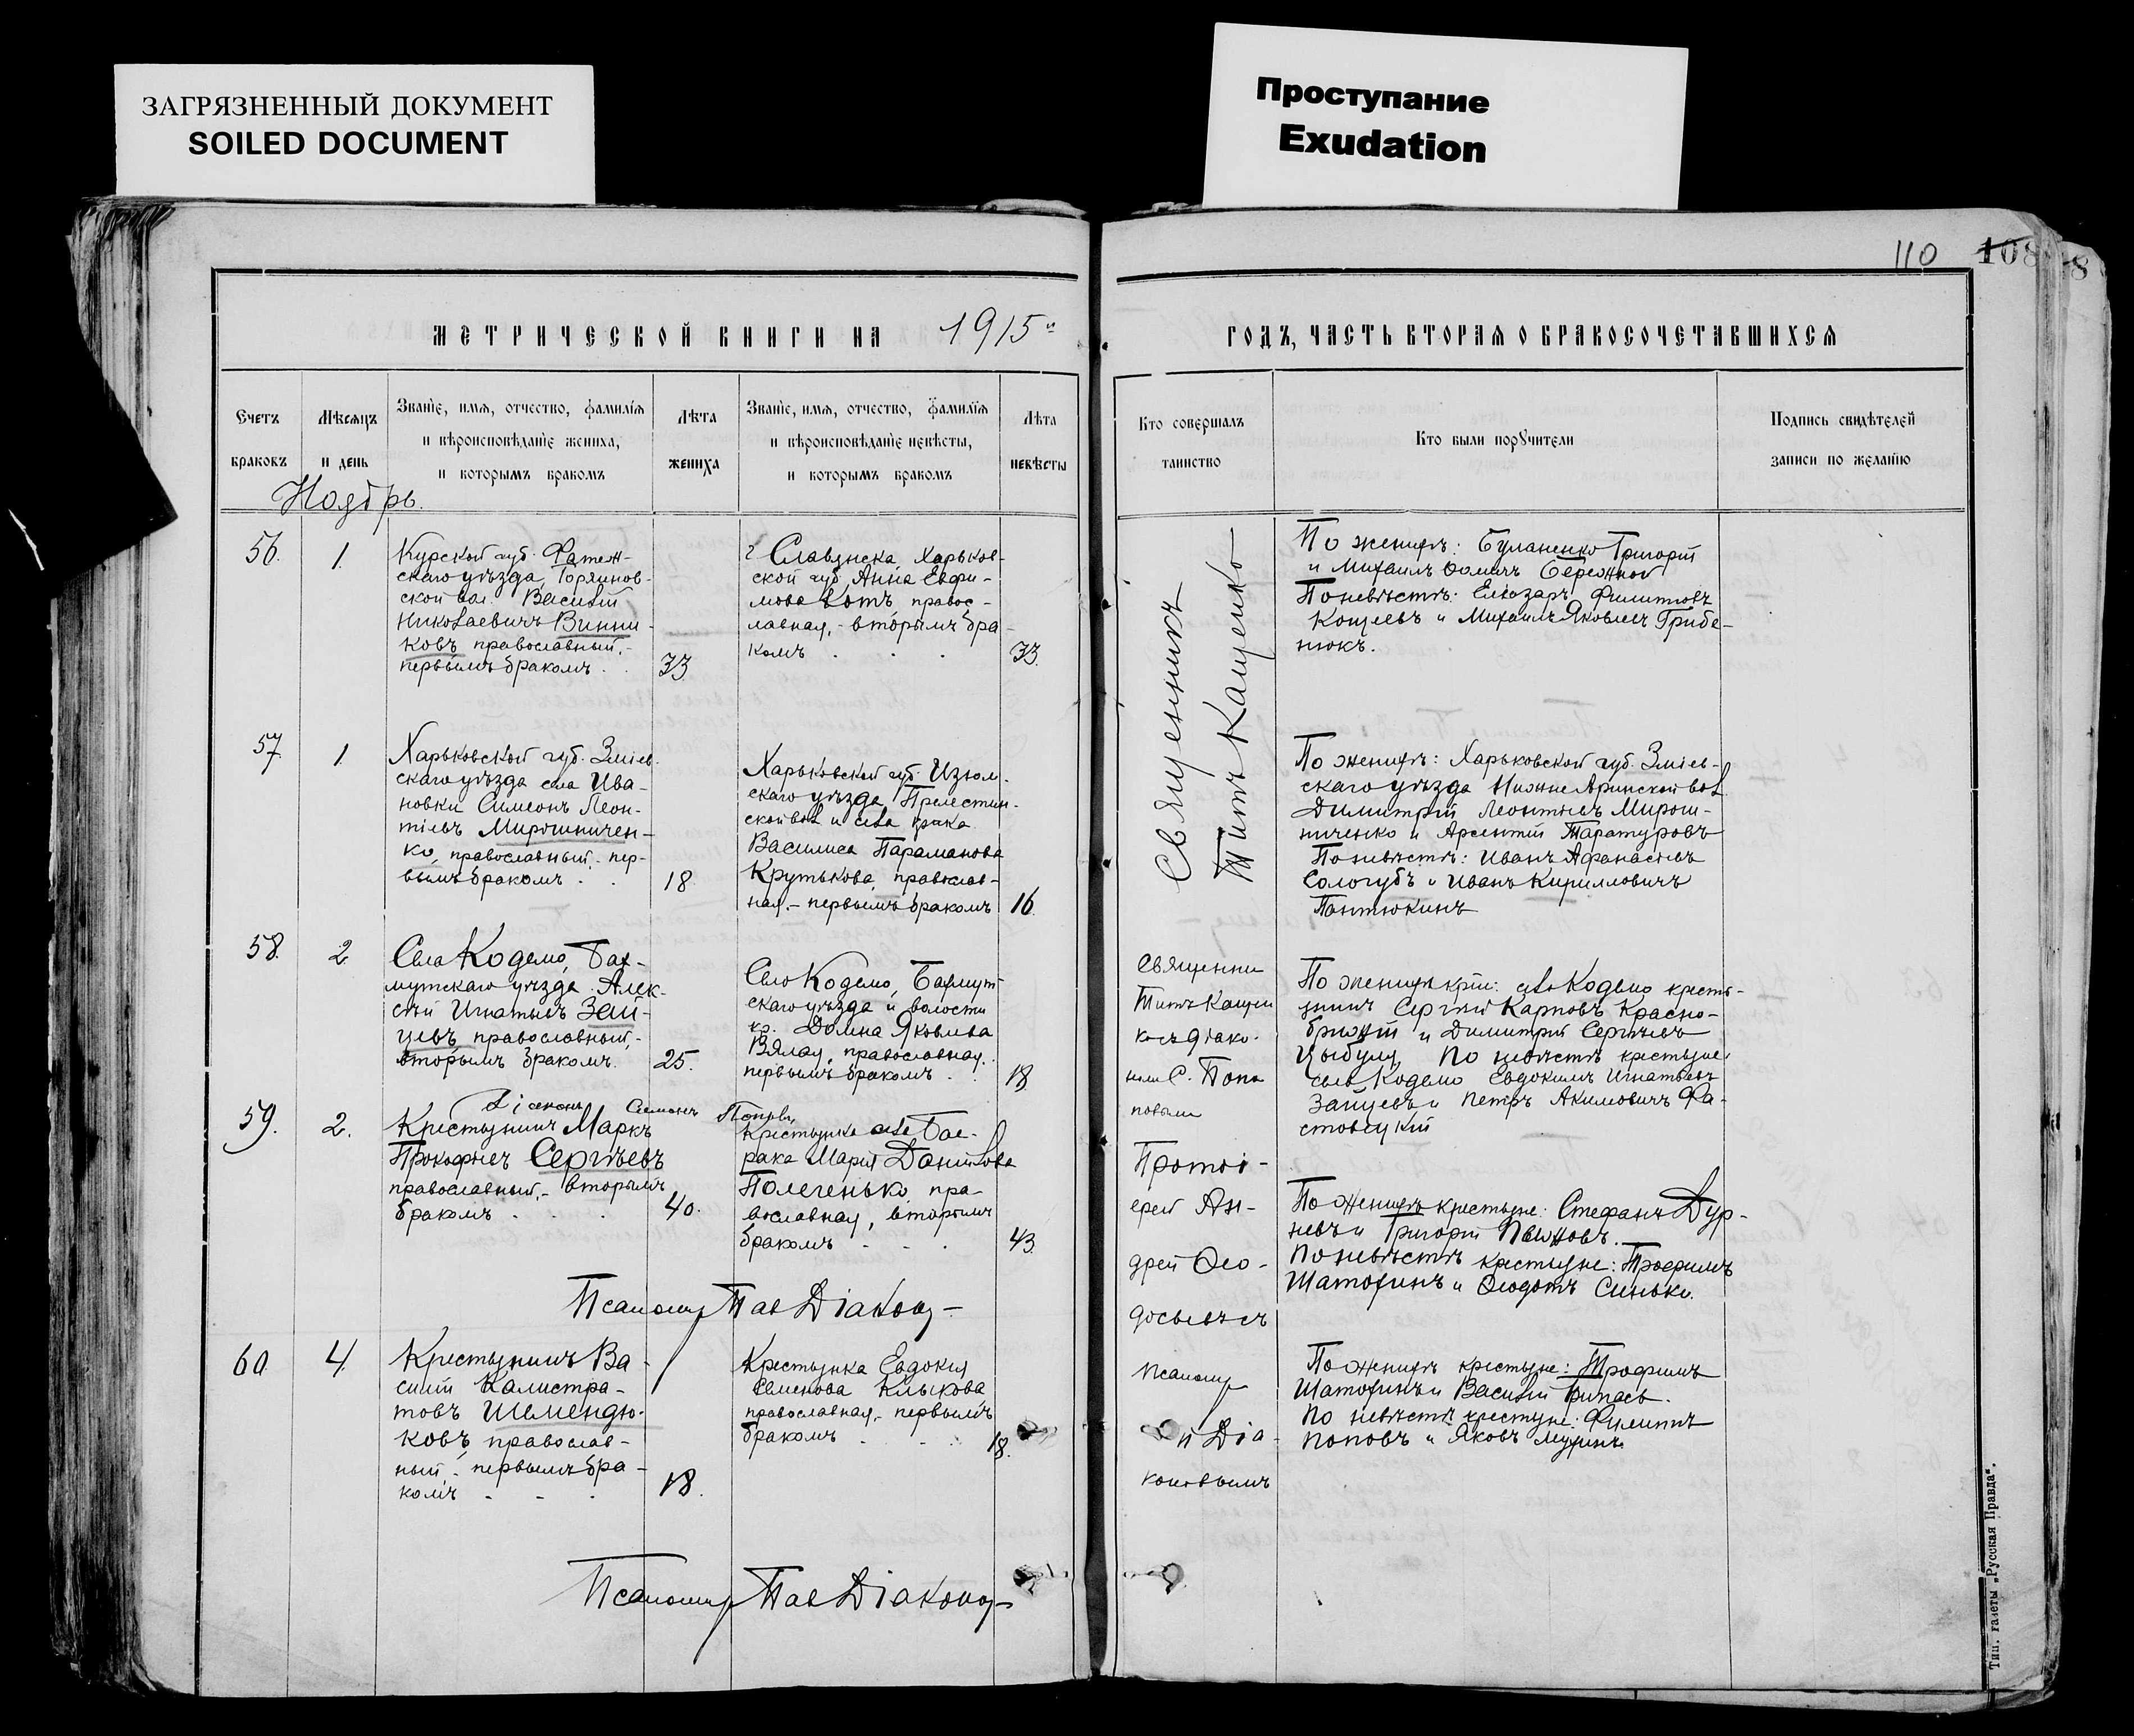 ЗАГРЯЗНЕННЫЙ ДОКУМЕНТ
SOILED DOCUMENT
Проступание
Exudation
110 108
8
МЕТРИЧЕСКОЙ КНИГИ НА 1915
ГОДЪ, ЧАСТЬ ВТОРАЯ О БРАКОСОЧЕТАВШИХСЯ
Счетъ
браковъ
Мѣсяцъ
и день
Званіе, имя, отчество, фамилія
и вѣроисповѣданіе жениха,
и которымъ бракомъ
Лѣта
жениха
Званіе, имя, отчество, фамилія
и вѣроисповѣданіе невѣсты,
и которымъ бракомъ
Лѣта
невѣсты
Кто совершалъ
таинство
Кто были поручители
Подпись свидѣтелей
записи по желанію
Ноябрь.
56. 1.
Курской губ. Фатеж-
скаго уѣзда,
ской вол. Василій
Николаевичъ Винни-
ковъ православный,-
первымъ бракомъ. 33
г Славянска, Харьков-
ской губ, Анна Евфи-
мова правос-
лавная, - вторымъ бра-
комъ 33.
Священникъ
Титъ Кащенко
По женихѣ: Буланенко Григорій
и Михаилъ Бережной
По невѣстѣ: Елеазаръ Филиповъ
Кощеевъ и Михаилъ Яковлевъ Грибе-
нюкъ.
57. 1
Харьковской губ. Зміев-
скаго уѣзда села Ива-
новки Симеонъ Леон-
тіевъ Мирошничен-
ко, православный,- пер-
вымъ бракомъ. 18
Харьковской губ. Изюм-
скаго уѣзда, Прелестин-
ской вол и села
Василиса Параманова
Крутькова, православ-
ная,- первымъ бракомъ 16.
По женихѣ: Харьковской губ. Зміев-
скаго уѣзда вол
Димитрій Леонтьевъ Мирош-
ниченко и Арсентій Таратуровъ
По невѣстѣ: Иванъ Афанасьевъ
Сологубъ и Иванъ Кирилловичъ
Пантюкинъ
58. 2
Села Кодемо, Бах-
мутскаго уѣзда Алек-
сѣй Игнатьевъ Зай-
цевъ православный,-
вторымъ бракомъ. 25.
Село Кодемо, Бахмут-
скаго уѣзда и волости
кр. Домна Яковлева
Вялая, православная.
первымъ бракомъ. 18
Священни
Титъ Кащен
ко съ діако-
номъ С. Попо
повымъ
По женихѣ: села Кодемо кресть-
янинъ Сергѣй Карповъ Красно-
и Димитрій Сергѣевъ
Цыбуля, По невѣстѣ крестьяне:
села Кодемо Евдокимъ Игнатьевъ
Зайцевъ и Петръ Акимовичъ Фа-
стовецкій
Діаконъ Симеонъ Поповъ
59. 2.
Крестьянинъ Маркъ
Прокофьевъ Сергѣевъ
православный,- вторымъ
бракомъ 40.
Крестьянка села Бае-
рака Марія Данилова
Полегенько, пра-
вославная, вторымъ
бракомъ 43.
Протоі-
ерей Ан-
дрей Ѳео-
досьевъ съ
По женихѣ крестьяне: Стефанъ Дур-
невъ и Григорій
По невѣстѣ крестьяне: Трофимъ
Шатохинъ и Ѳеодотъ Синько.
Псаломщ Пав Діаконов
60. 4.
Крестьянинъ Ва-
силій Калистра-
товъ Шемендю-
ковъ, православ-
ный,- первымъ бра-
комъ 18.
Крестьянка Евдокія
Семенова Клыкова
православная,- первымъ
бракомъ 18.
псаломщ
Діа-
коновымъ
По женихѣ крестьяне: Трофимъ
Шатохинъ и Василій
По невѣстѣ крестьяне: Филиппъ
Поповъ и Яковъ
Псаломщ Пав Діаконов
Тип. газеты „Русская Правда“.